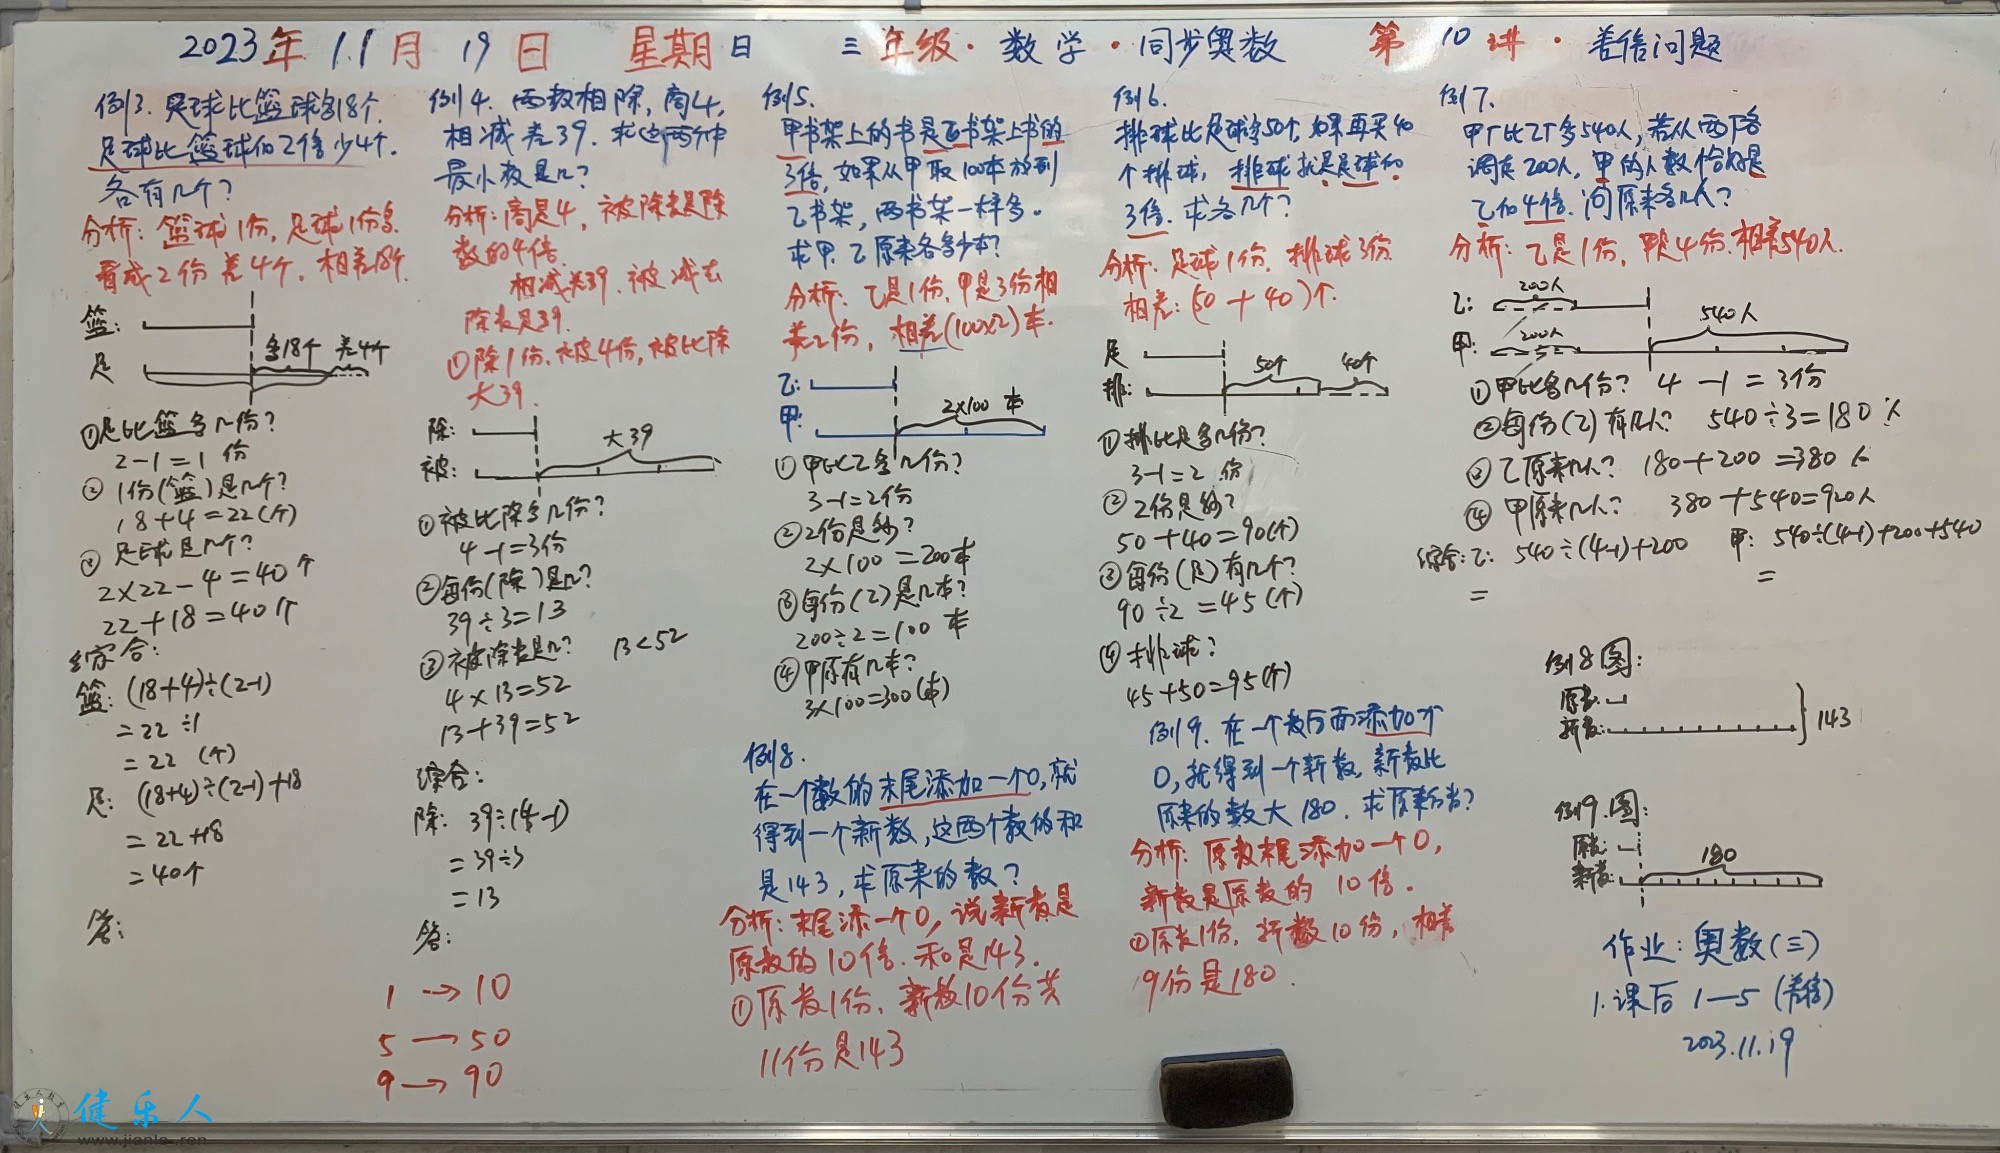 2023年 11月 19日 星期日 三年级·数学·同步奥数 第10讲·差倍问题
例3. 足球比篮球多18个.
足球比篮球的2倍少4个.
各有几个?
分析: 篮球1份, 足球1份多.
看成2份差4个. 相差18个.
篮:
多18个 差4个
足
①足比篮多几份?
2-1=1 份
② 1份(篮)是几个?
18+4=22(个)
③ 足球是几个?
2×22-4=40个
22+18=40个
综合:
篮: (18+4)÷(2-1)
=22÷1
=22 (个)
足: (18+4)÷(2-1)+18
=22+18
=40个
答:
例4. 两数相除, 商4,
相减差39. 求这两个中
最小数是几?
分析: 商是4, 被除数是除
数的4倍.
相减差39. 被减去
除数是39.
①除1份. 被4份, 被比除
大39.
除:
大39
被:
①被比除多几份?
4-1=3份
②每份(除)是几?
39÷3=13
③被除数是几? 13<52
4×13=52
13+39=52
综合:
除: 39÷(4-1)
=39÷3
=13
答:
1→10
5→50
9→90
例5.
甲书架上的书是乙书架上书的
3倍, 如果从甲取100本放到
乙书架, 两书架一样多.
求甲. 乙原来各多少本?
分析: 乙是1份. 甲是3份相
差2份, 相差(100×2)本.
乙:
2×100本
甲:
①甲比乙多几份?
3-1=2份
②2份是多少?
2×100=200本
③每份(乙)是几本?
200÷2=100本
④甲原有几本?
3×100=300(本)
例8.
在一个数的末尾添加一个0, 就
得到一个新数, 这两个数的和
是143, 求原来的数?
分析: 末尾添一个0, 说新数是
原数的10倍. 和是143.
①原数1份, 新数10份共
11份是143
例6.
排球比足球多50个, 如果再买40
个排球, 排球就是足球的
3倍. 求各几个?
分析: 足球1份. 排球3份.
相差: (50+40)个.
足
50个 40个
排:
①排比足多几份?
3-1=2 份
②2份是多少?
50+40=90(个)
③每份(足)有几个?
90÷2=45(个)
④排球?
45+50=95(个)
例9. 在一个数后面添加个
0, 就得到一个新数, 新数比
原来的数大180. 求原来的数?
分析: 原数末尾添加一个0,
新数是原数的10倍.
①原数1份, 新数10份, 相差
9份是180.
例7.
甲厂比乙厂多540人, 若从两厂各
调走200人, 甲的人数恰好是
乙的4倍. 问原来各几人?
分析: 乙是1份, 甲是4份. 相差540人.
200人
乙:
200人 540人
甲:
①甲比多几份? 4-1=3份
②每份(乙)有几人? 540÷3=180人
③乙原来几人? 180+200=380人
④甲原来几人? 380+540=920人
综合: 乙: 540÷(4-1)+200 甲: 540÷(4-1)+200+540
= =
例8图:
原数:
新数:
143
例9.图:
原数:
180
新数:
作业: 奥数(三)
1.课后 1—5 (差倍)
2023.11.19
健乐人
www.jianle.ren